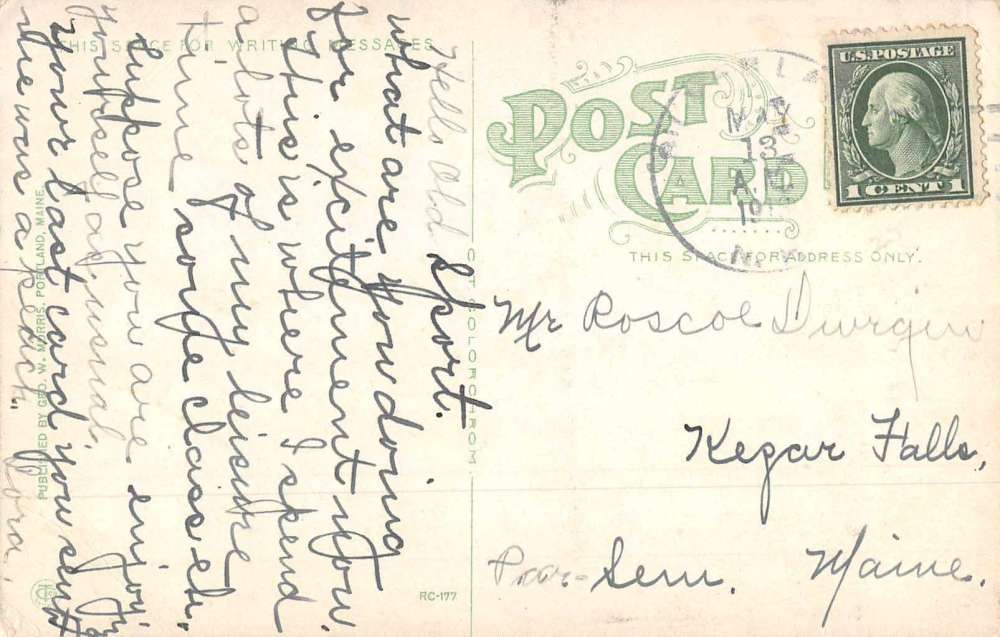 THIS SPACE FOR WRITING MESSAGES
Hello Old Sport.
what are you doing
for excitement now.
This is where I spend
a lots of my leisure
time some class eh.
Suppose you are enjoying
yourself as usual.
Your last card you sent
me was a peach. Dora.
PUBLISHED BY GEO. W. MORRIS, PORTLAND, MAINE.
OCTOCHROM
RC-177
POST CARD
MAY
13
A.M.
N.Y.
U.S. POSTAGE
1 CENT 1
THIS SPACE FOR ADDRESS ONLY.
Mr Roscoe
Kezar Falls,
Par. Sem. Maine.